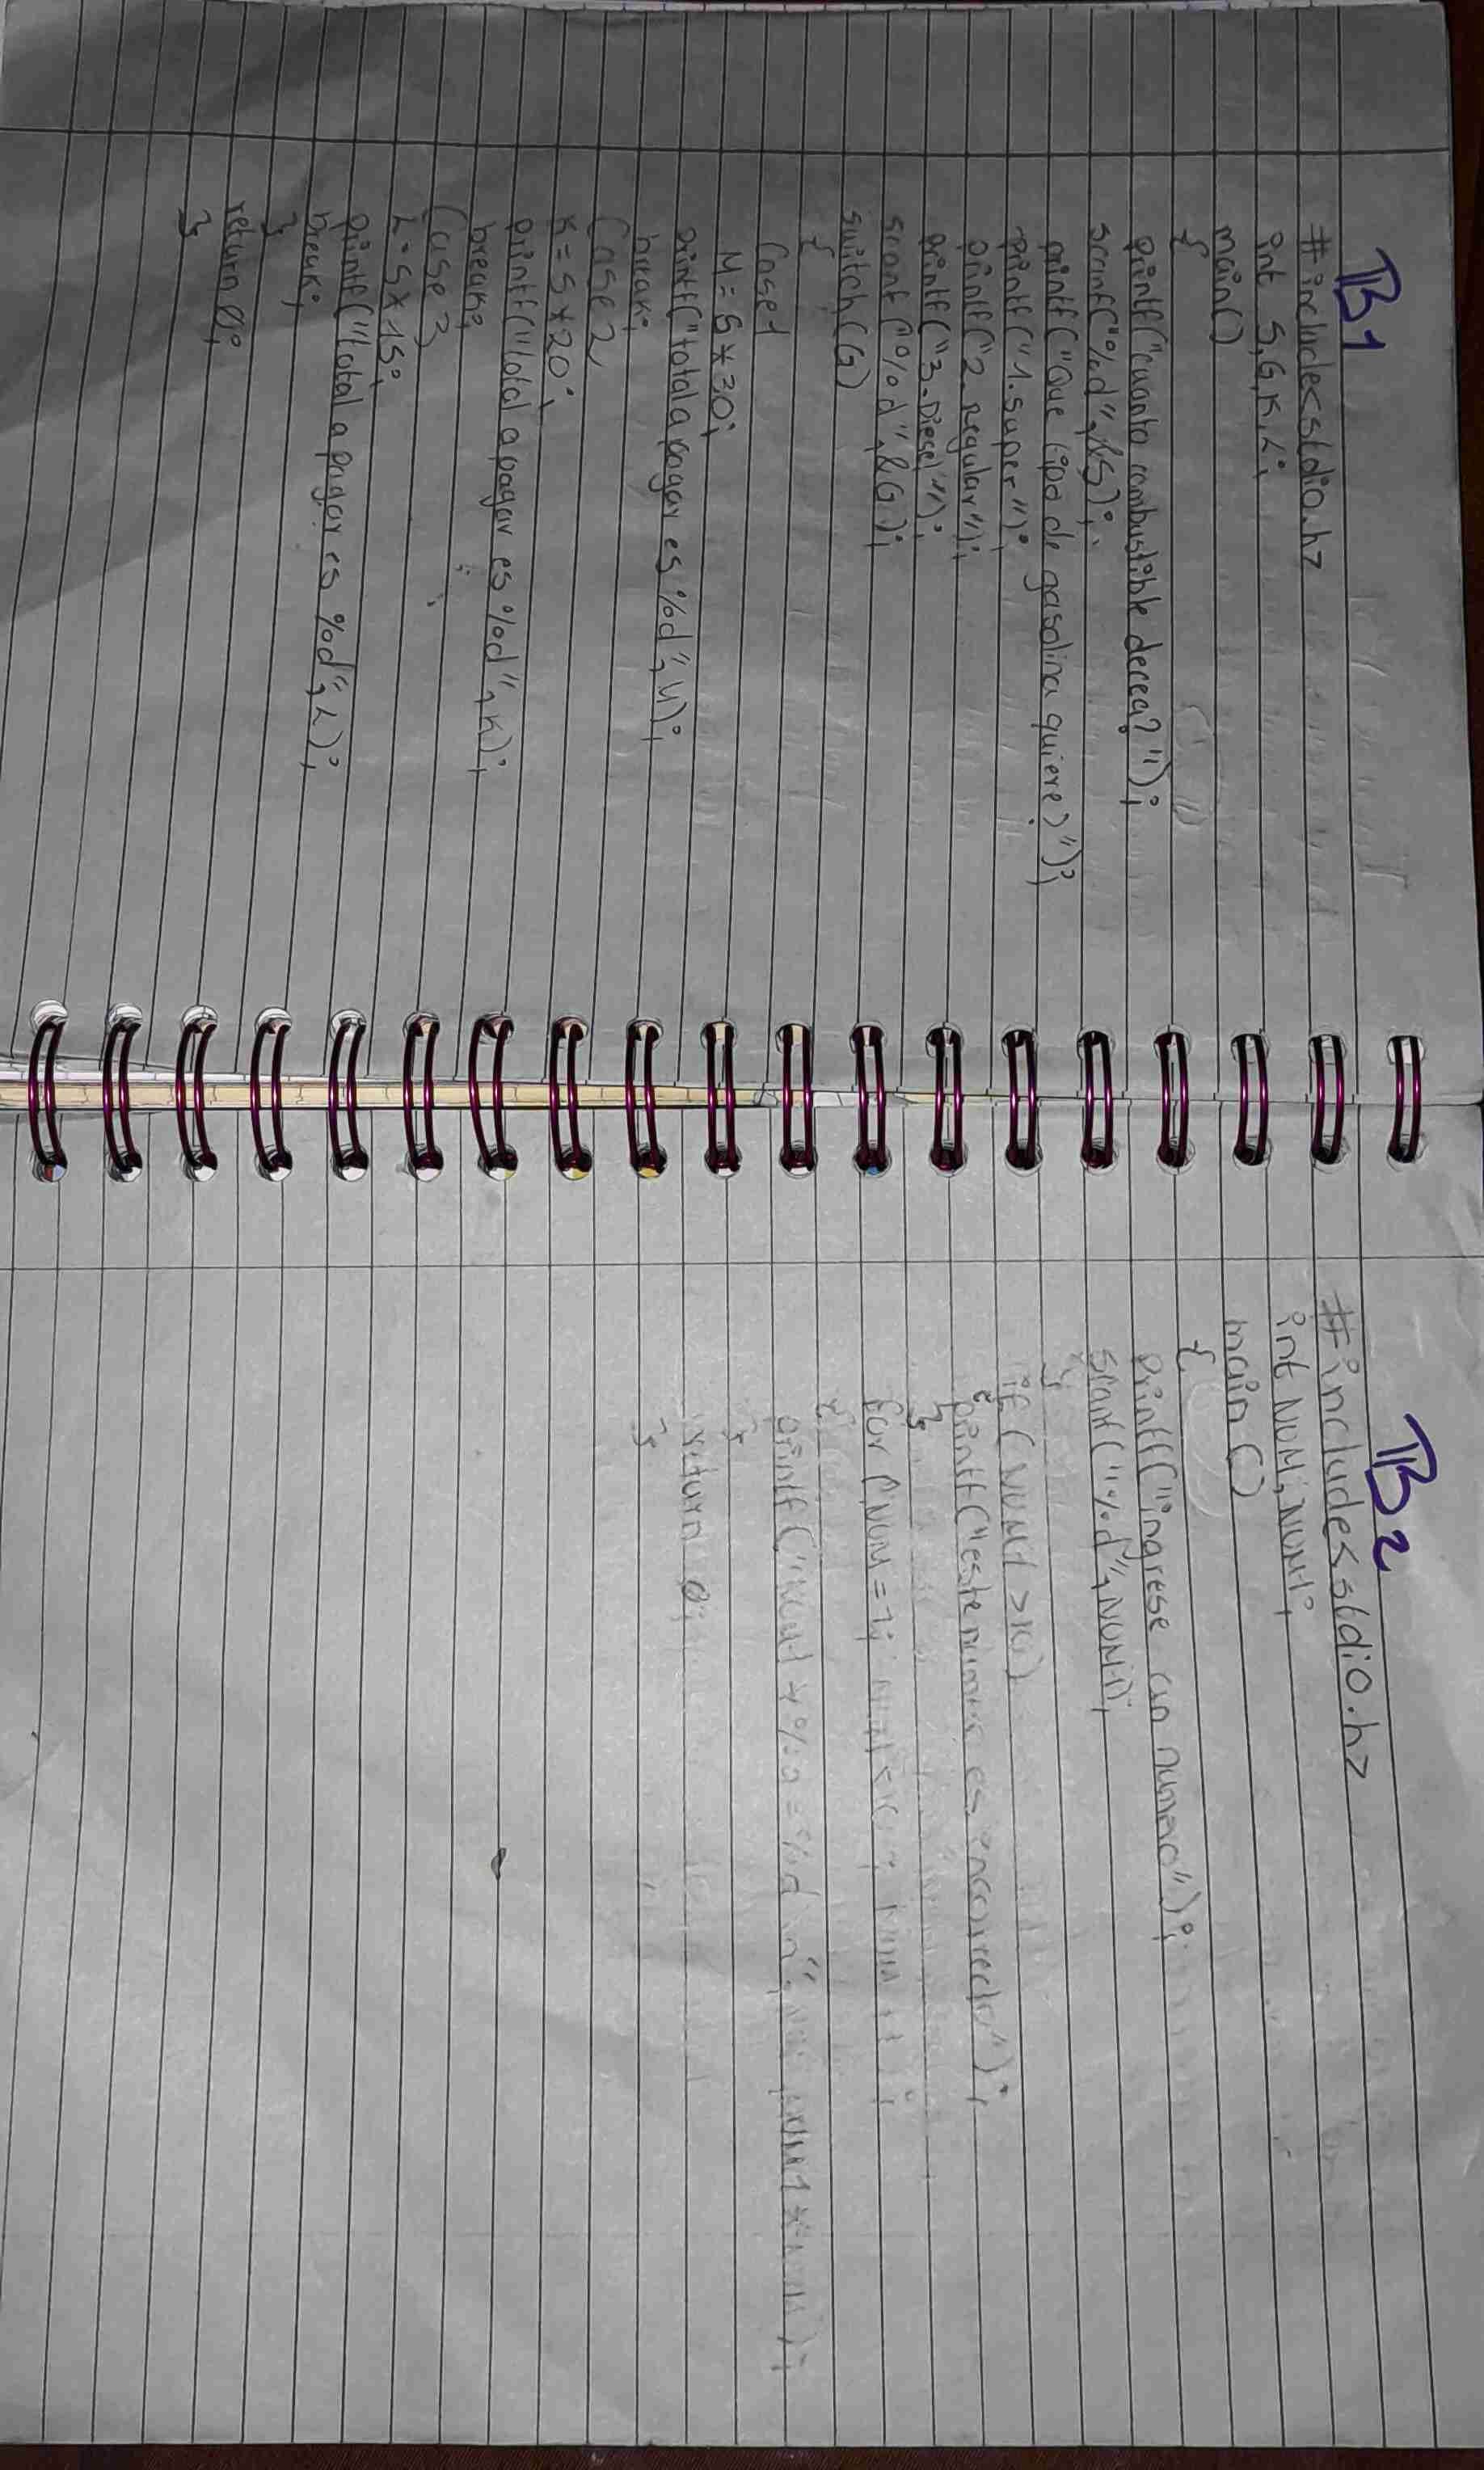 B1
#include<stdio.h>
int S,G,K,L;
main()
{
printf("cuanto combustible decea?");
scanf("%d",&S);
printf("Que tipo de gasolina quiere?");
printf("1.super");
printf("2.Regular");
printf("3.Diesel");
scanf("%d",&G);
switch(G)
{
Case 1
M=S*30;
printf("total a pagar es %d",M);
break;
Case 2
K=S*20;
printf("total a pagar es %d",K);
break;
Case 3
L=S*15;
printf("total a pagar es %d",L);
break;
}
return 0;
}
B2
#include<stdio.h>
int NUM,NUM1;
main()
{
printf("ingrese un numero");
scanf("%d",NUM1);
}
if(NUM1>10)
{
printf("este numero es incorrecto");
}
for(NUM=1;
{
printf("
}
return 0;
}